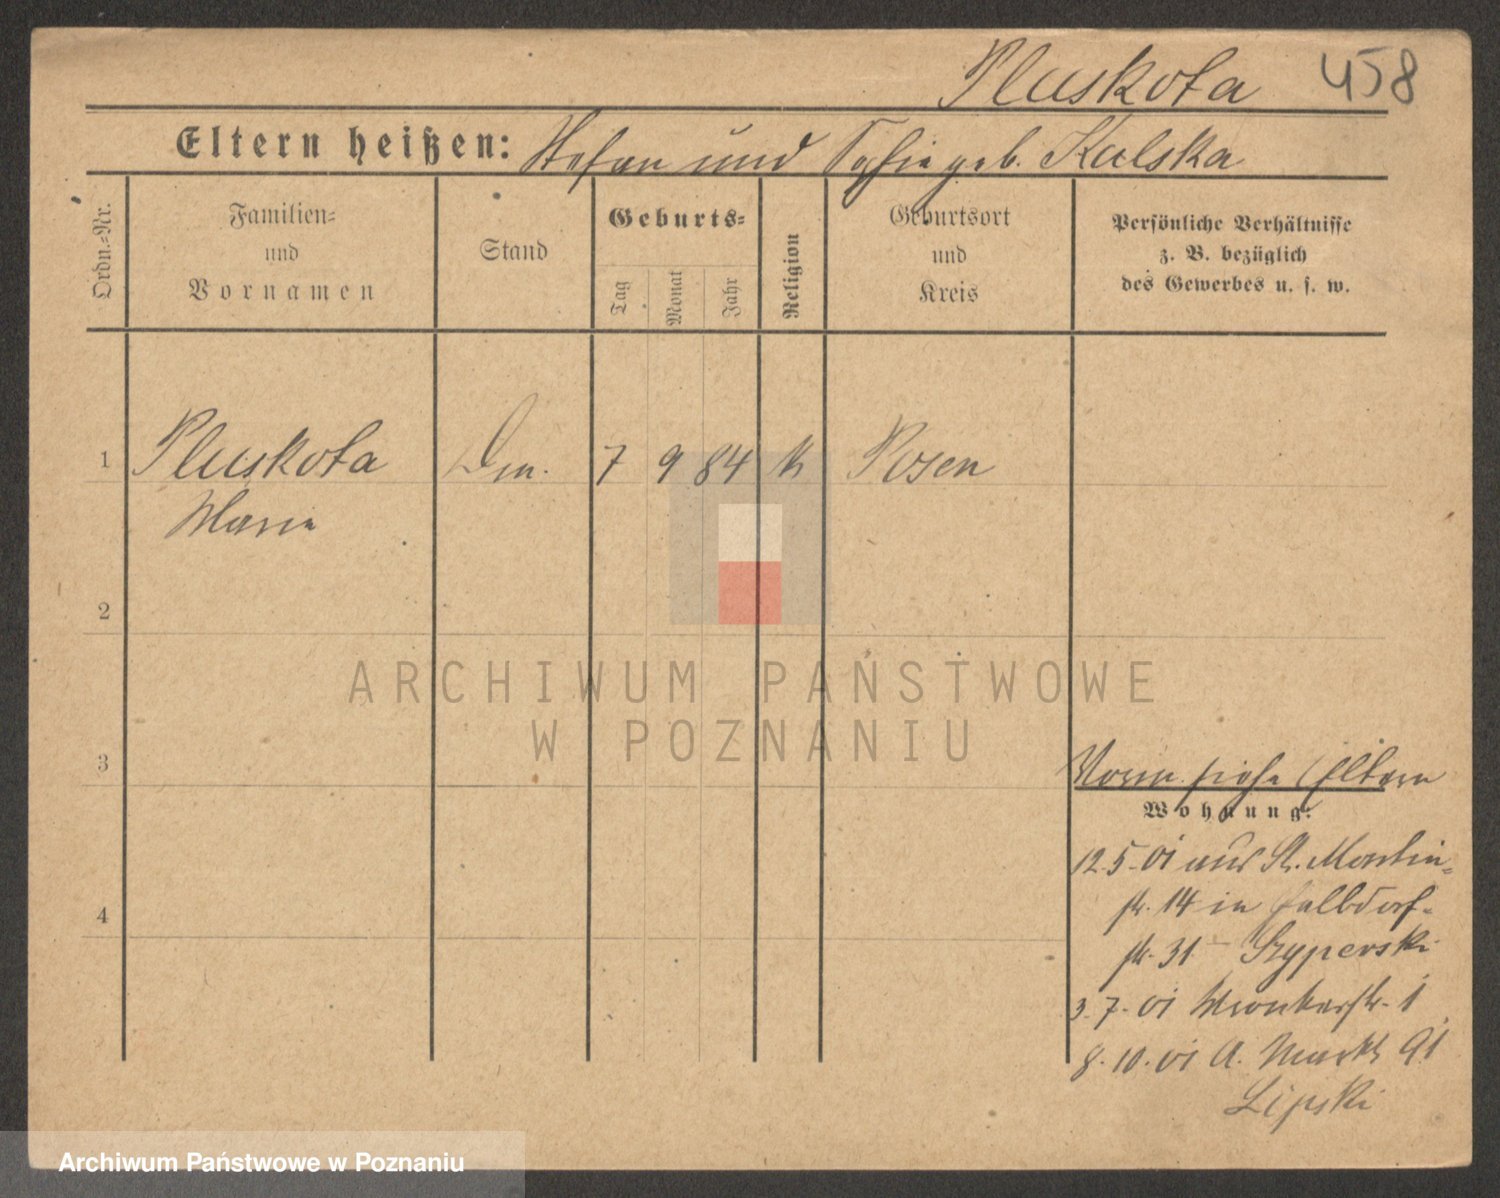 Pluskota 458
Eltern heißen: Stefan und Sofie geb. Kulska
Ordn.-Nr.
Familien-
und
Vornamen
Stand
Geburts-
Tag
Monat
Jahr
Religion
Geburtsort
und
Kreis
Persönliche Verhältnisse
z. B. bezüglich
des Gewerbes u. s. w.
1 Pluskota 7 9 84 k Posen
Marie
2
3
4
siehe Eltern
Wohnung:
12.5.01 aus St. Martin-
str. 14 in Halbdorf-
str. 31 - Szyperski
3.7.01 Wronkerstr. 1
8.10.01 A. Markt 91
Lipski
ARCHIWUM PAŃSTWOWE
W POZNANIU
Archiwum Państwowe w Poznaniu